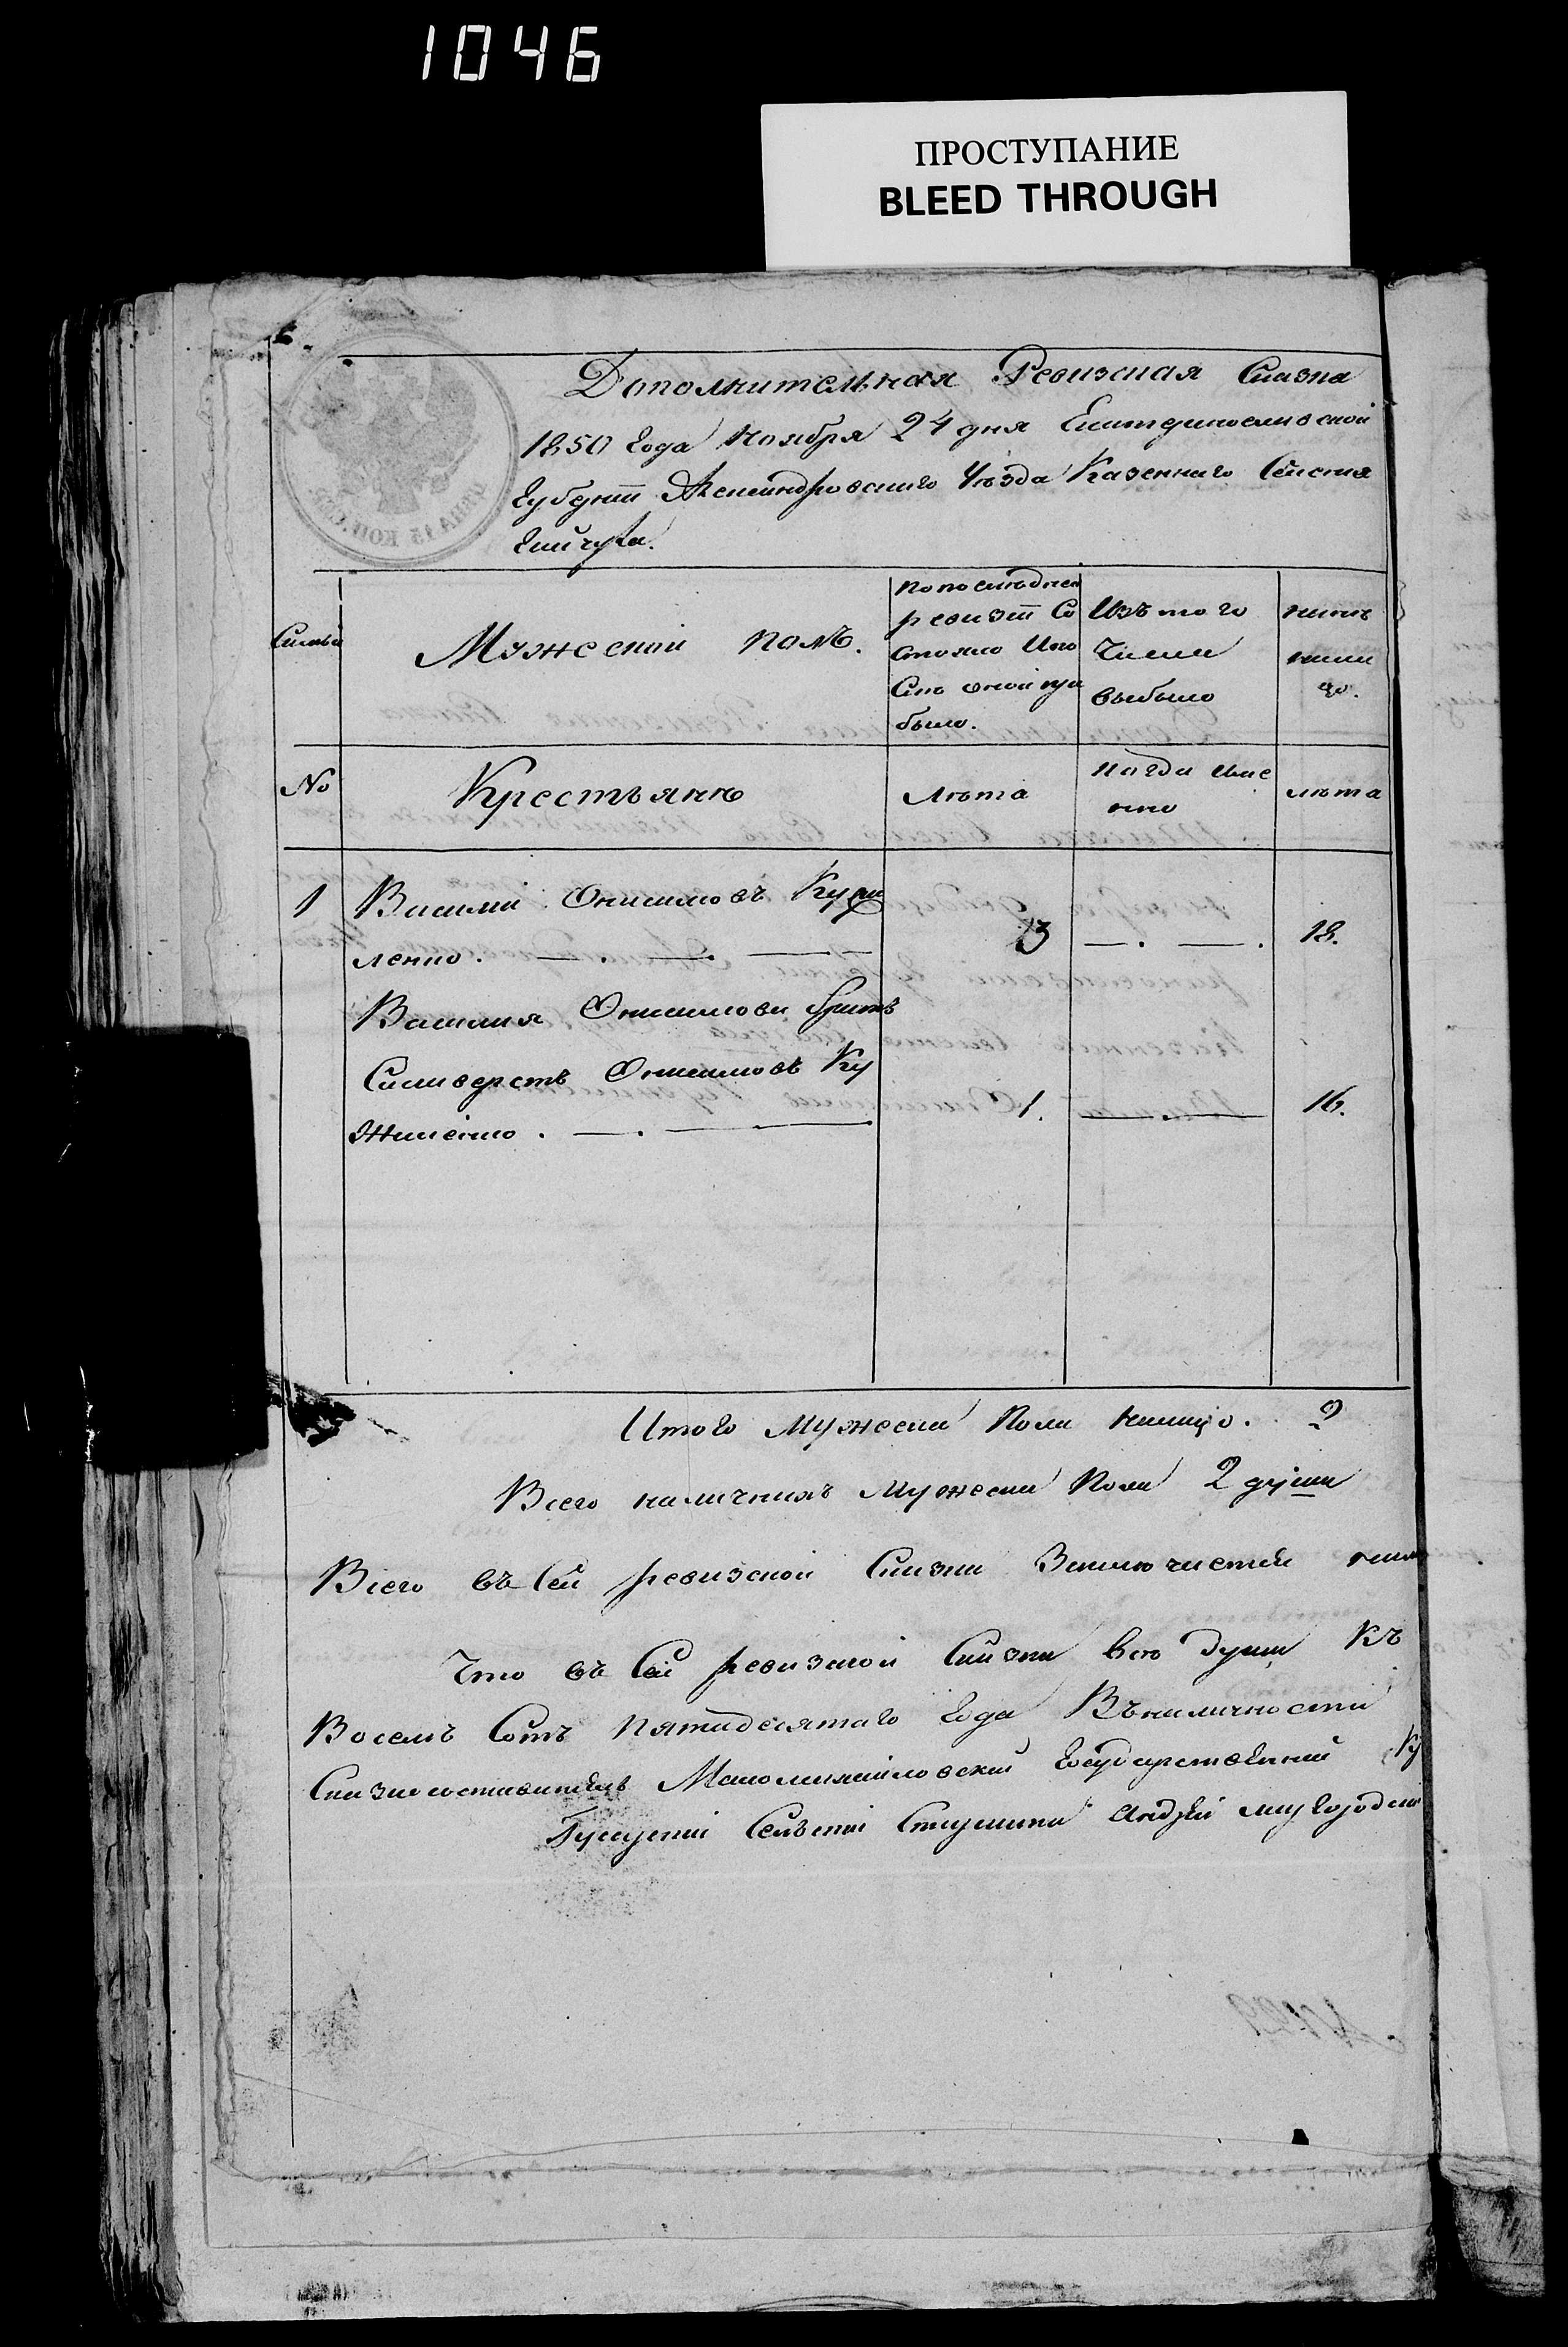 1046
ПРОСТУПАНИЕ
BLEED THROUGH
Дополнительная Ревизская Сказка
1850 Года Ноября 24 дня Екатеринославской
Губернии Александровского Уѣзда Казеннаго Селенія
Гайчура.
Мужеской полъ.
по последней
ревизіи Со
стояло И по
Слѣ оной при
было.
Изъ того
Числа
выбыло
нынѣ
на ли
цо.
№
Крестьянъ
Лѣта
Когда имен
но
лѣта
1
Василій Онисимовъ
ленко.
13
18.
Василия Онисимова братъ
Силиверстъ Онисимовъ Ку
1.
16.
Итого Мужеска Пола налицо. 2
Всего наличныхъ Мужеска Пола 2 души
Всего въ Сей ревизской Сказки
Что въ Сей ревизской Сказки Все души Къ
Восемъ Сотъ Пятидесятаго Года Въ наличности
Маломихайловский Государственный
Сельскій Андрей